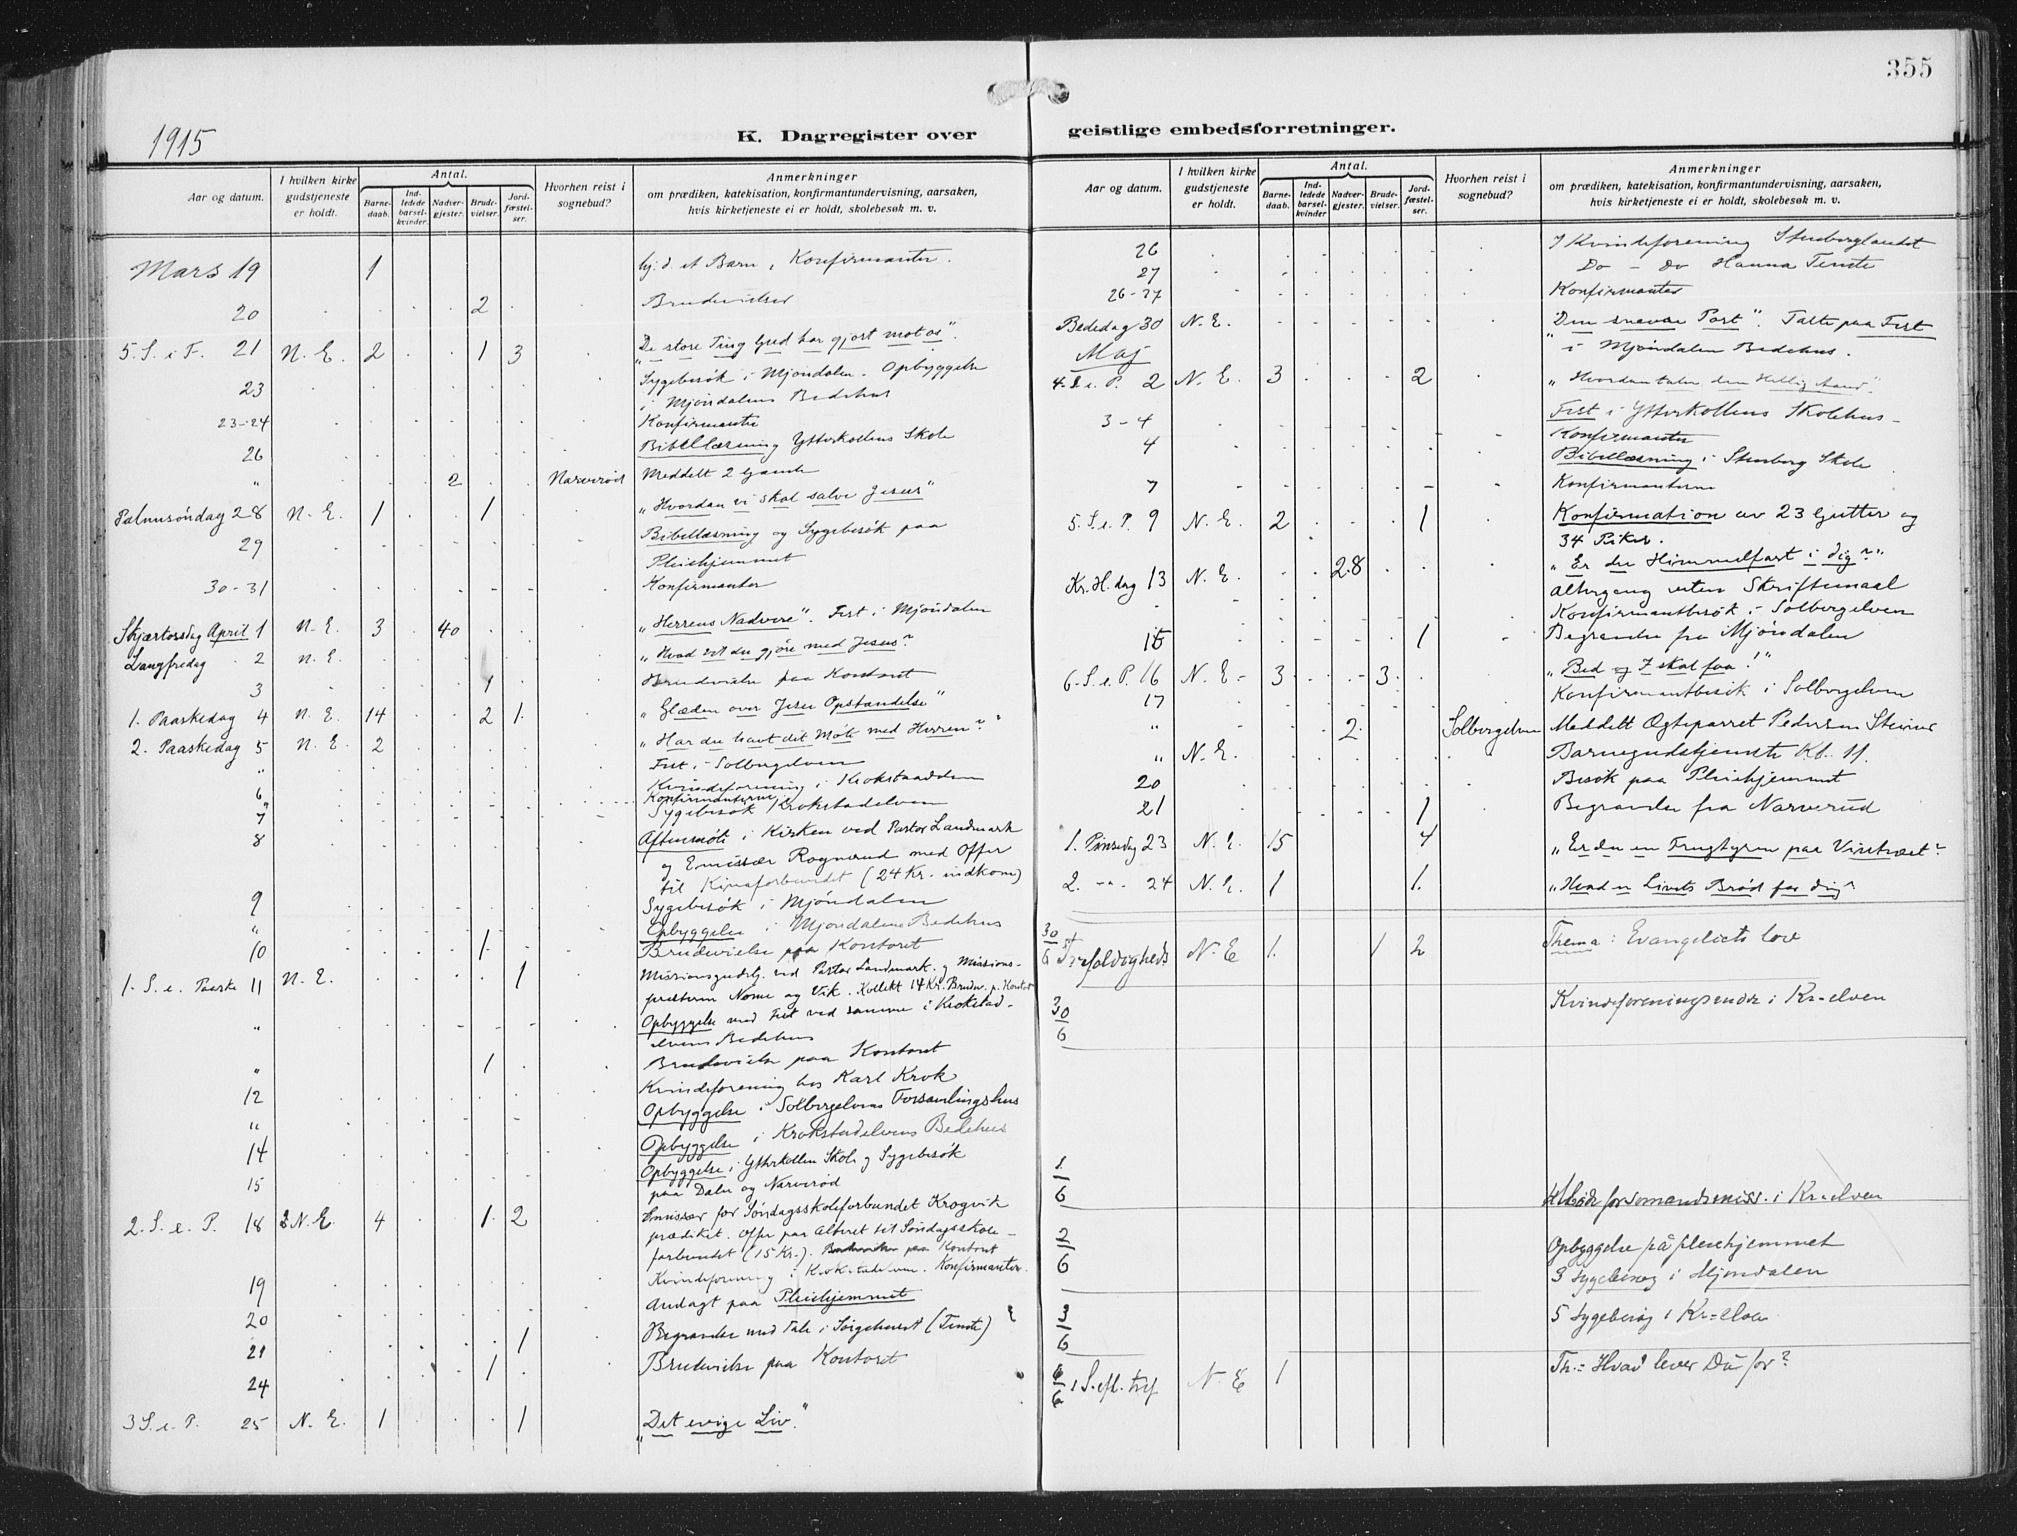 355
1915
K. Dagregister over
geistlige embedsforretninger.
Aar og datum.
I hvilken kirke gudstjeneste er holdt.
Antal.
Barnedaab.
Indledede barselkvinder
Nadvergjester.
Brudevielser.
Jordfæstelser.
Hvorhen reist i sognebud?
Anmerkninger
om prædiken, katekisation, konfirmantundervisning, aarsaken,
hvis kirketjeneste ei er holdt, skolebesøk m. v.
Mars 19 1 hj. d. et Barn, Konfirmanter.
20 2 Brudevielser
5. S. i F. 21 N. E. 2 1 3 "De store Ting Gud har gjort mot os".
23 Sygebesök i Mjöndalen. Opbyggelse
i Mjöndalens Bedehus
23-24 Konfirmanter
26 Bibellæsning Ytterkollens Skole
" 2 Narveröd Meddelt 2 Gamle
Palmesöndag 28 N. E. 1 1 "Hvordan vi skal salve Jesus"
29 Bibellæsning og Sygebesök paa
Pleiehjemmet
30-31 Konfirmanter
Skjærtorsdag April 1 N. E. 3 40 "Herrens Nadvere". Fest i Mjöndalen
Langfredag 2 N. E. "Hvad vil du gjöre med Jesus?
3 1 Brudevielse paa Kontoret
1. Paaskedag 4 N. E. 14 2 1. "Glæden over Jesu Opstandelse"
2. Paaskedag 5 N. E. 2 "Har du havt dit Möte med Herren?"
" Fest i Solbergelven
6 Kvindeforening i Krokstadelven
Konfirmanterne
7 Sygebesök Krokstadelven
8 Aftenmöte i Kirken ved Pastor Landmark
og Emissær Rognerud med Offer
til Kinaforbundet (24 Kr. indkom)
9 Sygebesök i Mjöndalen
" Opbyggelse i Mjöndalens Bedehus
10 1. Brudevielse paa Kontoret
1. S. e. Paaske 11 N. E. 1 Missionsgudstj. ved Pastor Landmark og Missions-
presterne Nome og Vik. Kollekt 14 Kr. Brudev. p. Kontoret
" Opbyggelse med Fest ved samme i Krokstad-
elvens Bedehus
" 1 Brudevielse paa Kontoret
12 Kvindeforening hos Karl Krok
" Opbyggelse i Solbergelvens Forsamlingshus
14 Opbyggelse i Krokstadelvens Bedehus
15 Opbyggelse i Ytterkollen Skole og Sygebesök
paa Daler og Narveröd
2. S. e. P. 18 N. E. 4 1. 2 Emissær for Söndagsskoleforbundet Krogvik
prædiket. Offer paa Alteret til Söndagsskole-
forbundet (15 Kr.). Kontoret
19 Kvindeforening i Krokstadelven. Konfirmanter.
20 Andagt paa Pleiehjemmet
21 1 Begravelse med Tale i Sörgehuset (Tende)
24 1 Brudevielse paa Kontoret
3 S. e. P. 25 N. E. 1 1 "Det evige Liv."
26 I Kvindeforening Stenberglandet
27 Do - do Hanna Tende
26-27 Konfirmanter
Bededag 30 N. E. "Den snevre Port". Talte paa Fest
i Mjöndalen Bedehus.
Maj
4. S. e. P. 2 N. E. 3 2 "Hvordan taler den Hellig Aand".
3-4 Fest i Ytterkollens Skolehus-
Konfirmanter
4 Bibellæsning i Stenberg Skole
7 Konfirmanterne
5. S. e. P. 9 N. E. 2 1 Konfirmation av 23 Gutter og
34 Piker.
Kr. H. dag 13 N. E. 28 "Er der Himmelfart i dig?"
Altergang uten Skriftemaal
Konfirmantbesök i Solbergelven
15 1 Begravelse fra Mjöndalen
6. S. e. P. 16 N. E. 3 3 "Bed og I skal faa!"
17 Konfirmantbesök i Solbergelven
" 2. Solbergelven Meddelt Ægteparret Pedersen
" N. E. Barnegudstjeneste Kl. 11.
20 Besök paa Pleiehjemmet
21 1 Begravelse fra Narverud
1. Pinsedag 23 N. E. 15 4 "Er du en Frugtgren paa Vintræet?
2. -"- 24 N. E. 1 1. "Hvad er Livets Bröd for dig?
30/5 Trefoldigheds N. E 1. 1 2 Thema: Evangeliets lov
30/6 Kvindeforeningsmöde i Kr-elven
1/6 for sömandsmiss. i Kr-elven
2/6 Opbyggelse på pleiehjemmet
3 Sygebesøg i Mjøndalen
3/6 5 Sygebesøg i Kr=elven
6/6 1 S. eft. tref N. E 1 Th.= Hvad lever Du for?